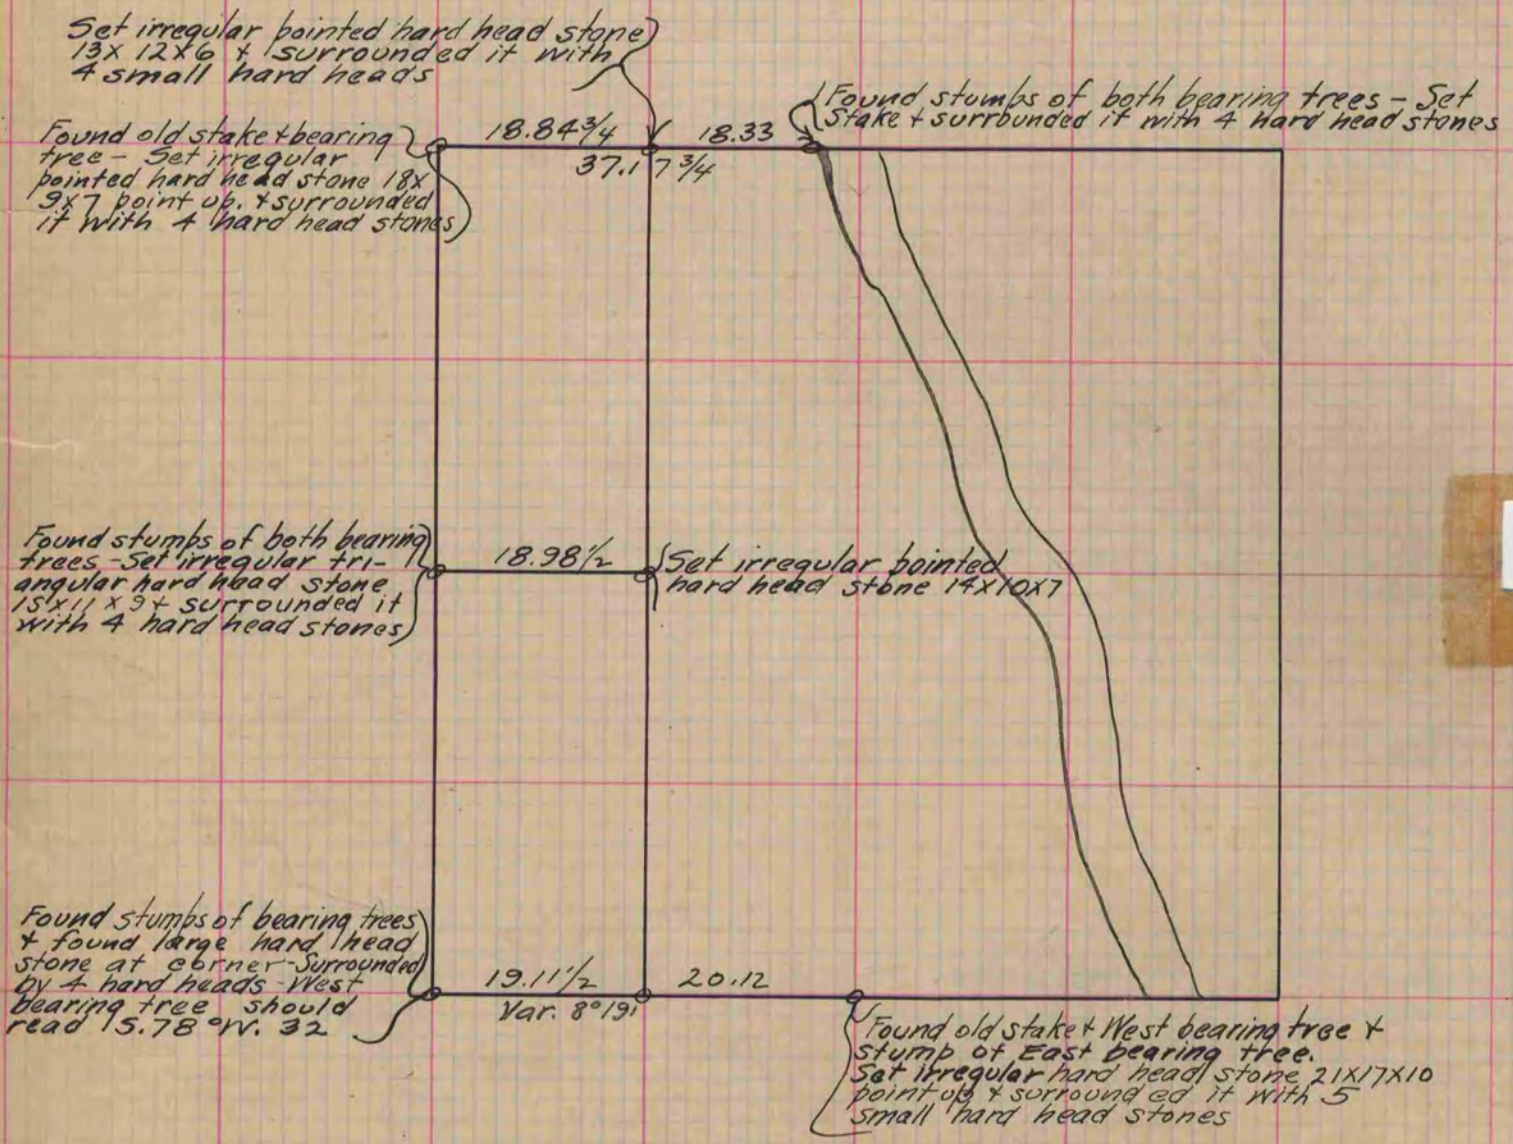 Set irregular pointed hard head stone
13 x 12 x 6 & surrounded it with
4 small hard heads
Found stumps of both bearing trees - Set
Stake & surrounded it with 4 hard head stones
Found old stake & bearing
tree - Set irregular
pointed hard head stone 18x
9x7 point up. & surrounded
it with 4 hard head stones
18.84 3/4
18.33
37.17 3/4
Found stumps of both bearing
trees - Set irregular tri-
angular hard head stone
15 x 11 x 9 & surrounded it
with 4 hard head stones
18.98 1/2
Set irregular pointed
hard head stone 14x10x7
Found stumps of bearing trees
& found large hard head
stone at corner - Surrounded
by 4 hard heads - West
bearing tree should
read S.78°W. 32
19.11 1/2
20.12
Var. 8°19'
Found old stake & West bearing tree &
stump of East bearing tree.
Set irregular hard head stone 21x17x10
point up & surrounded it with 5
small hard head stones